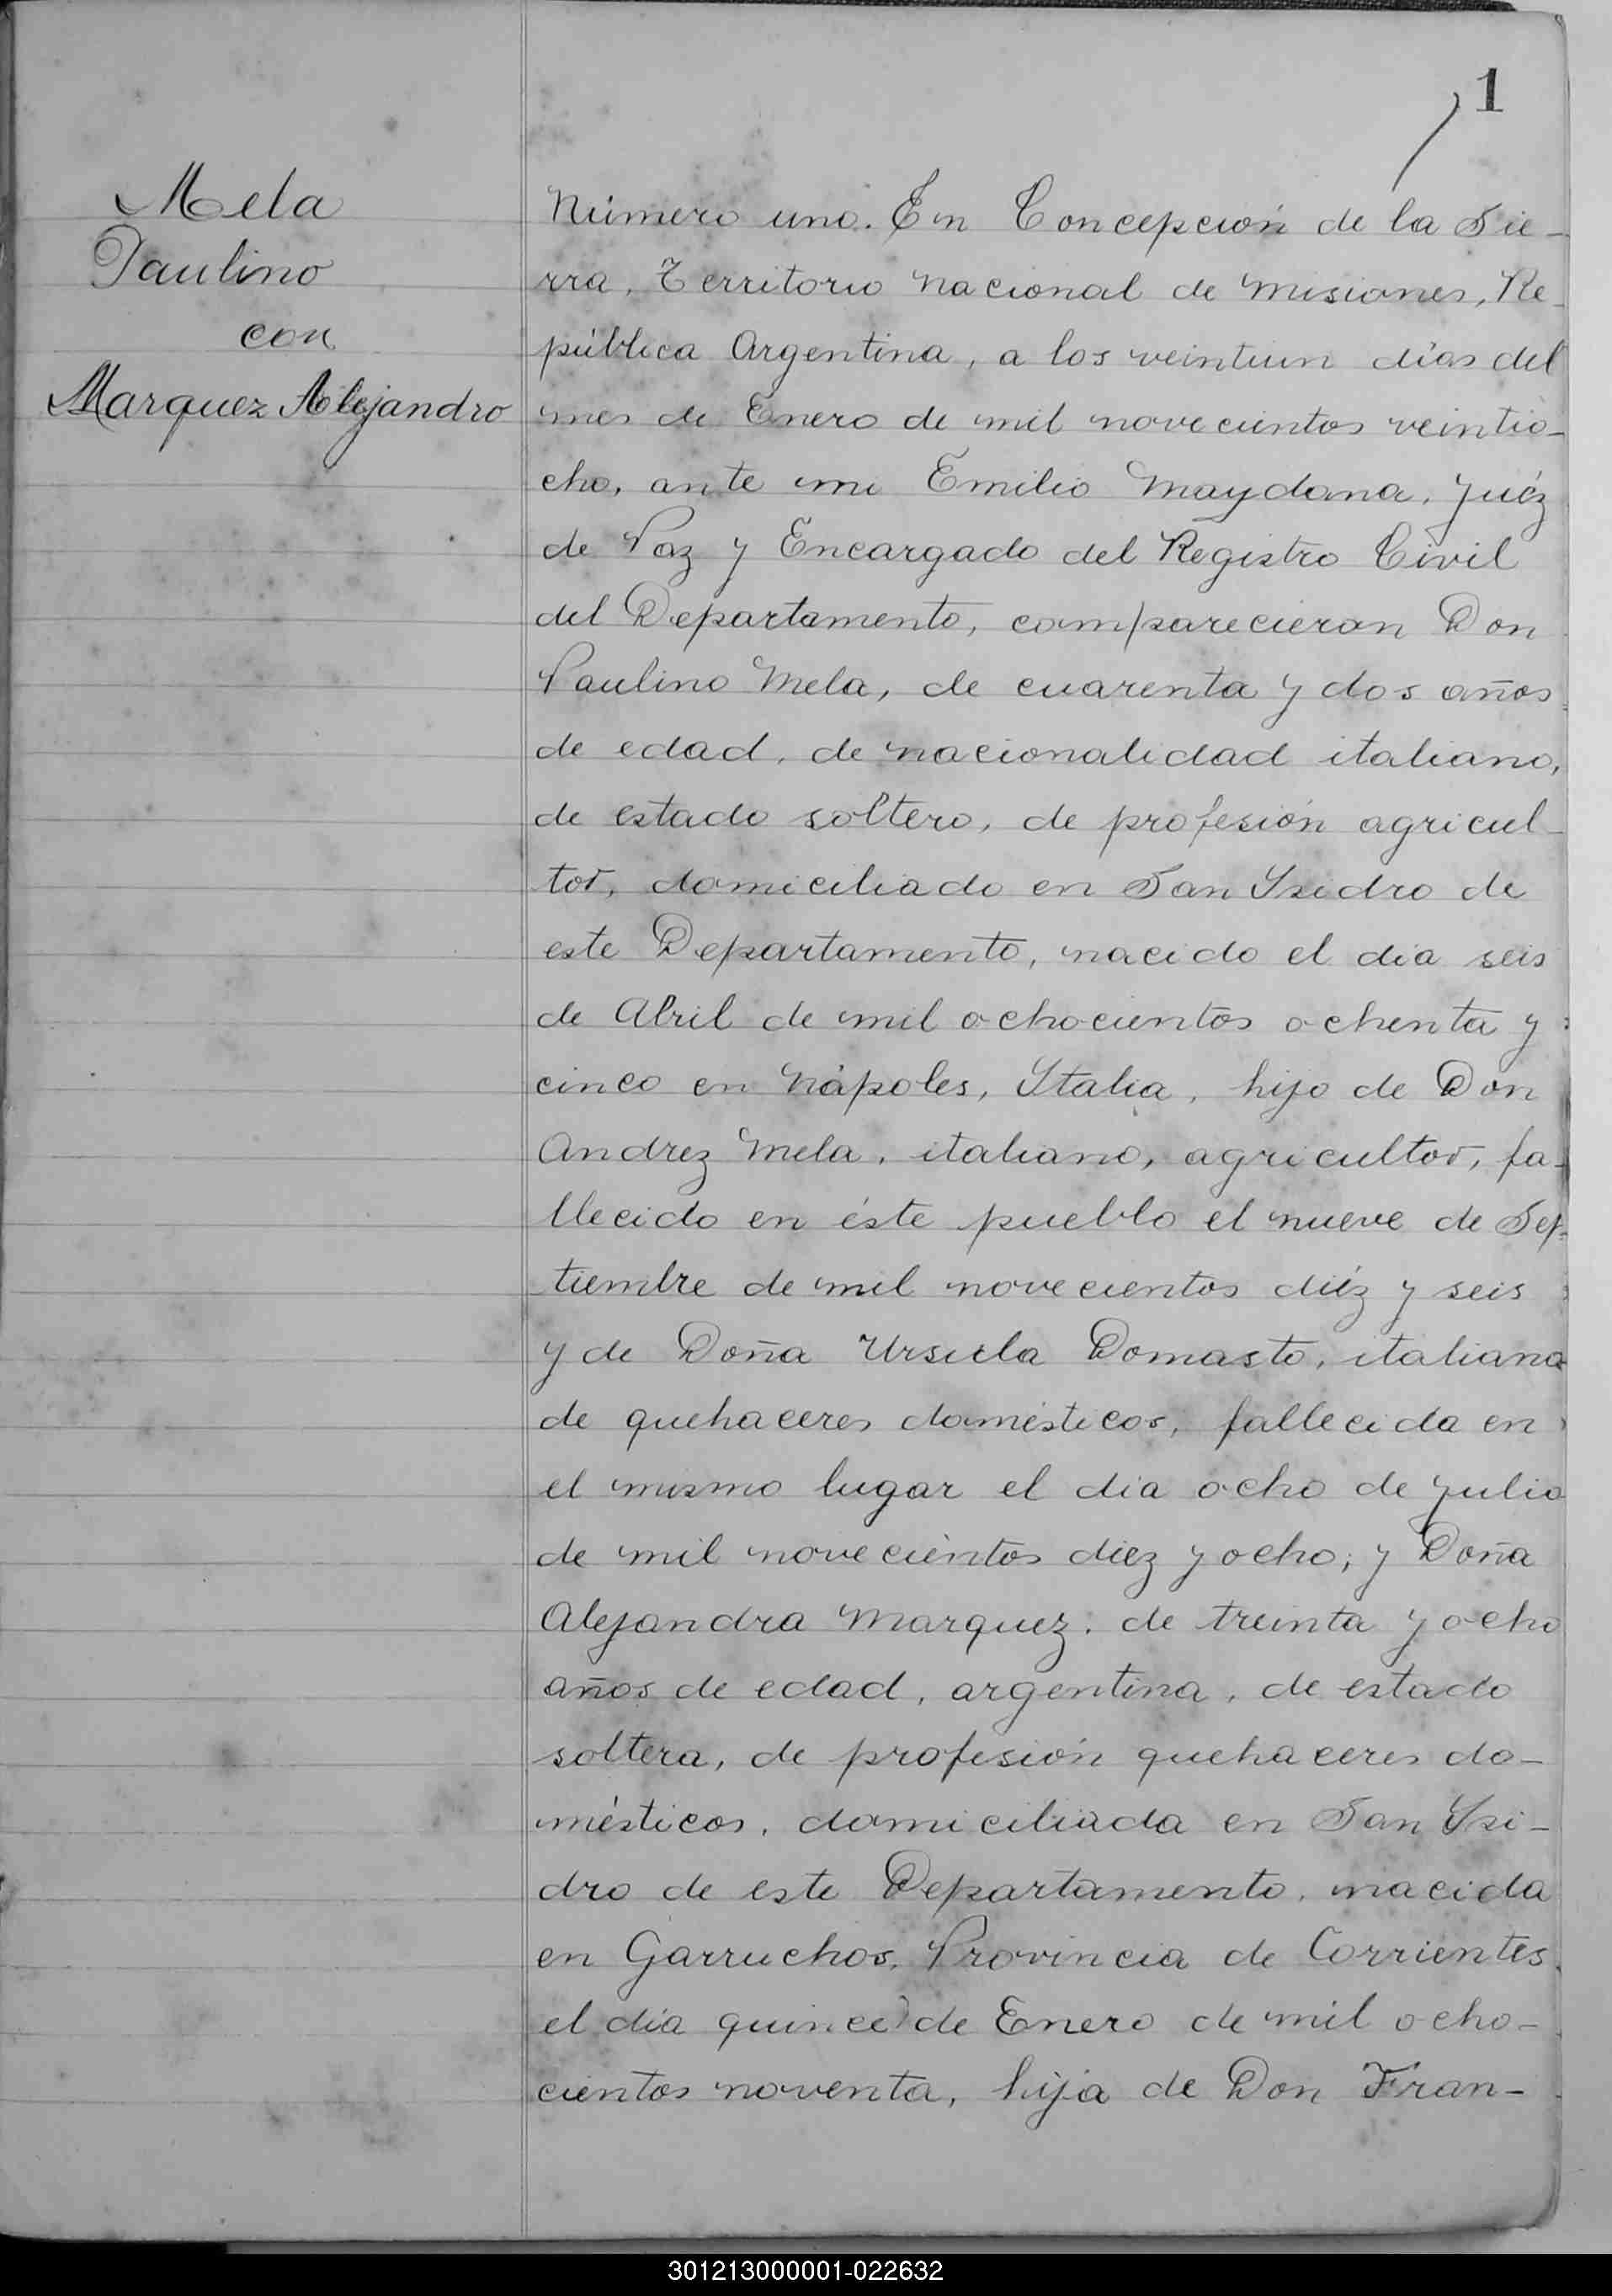 1
Mela
Paulino
con
Marquez Alejandro
Número uno. En Concepción de la Sie-
rra, Territorio Nacional de Misiones, Re-
pública Argentina, a los veintiun días del
mes de Enero de mil novecientos veintio-
cho, ante mi Emilio Maydana, Juéz
de Paz y Encargado del Registro Civil
del Departamento, comparecieron Don
Paulino Mela, de cuarenta y dos años
de edad, de nacionalidad italiano,
de estado soltero, de profesión agricul-
tor, domiciliado en San Ysidro de
este Departamento, nacido el dia seis
de Abril de mil ochocientos ochenta y
cinco en Nápoles, Ytalia, hijo de Don
Andrez Mela, italiano, agricultor, fa-
llecido en éste pueblo el nueve de Sep-
tiembre de mil novecientos diéz y seis
y de Doña Ursula Domasto, italiana
de quehaceres domésticos, fallecida en
el mismo lugar el dia ocho de Julio
de mil novecientos diez y ocho; y Doña
Alejandra Marquez, de treinta y ocho
años de edad, argentina, de estado
soltera, de profesión quehaceres do-
mésticos, domiciliada en San Ysi-
dro de este Departamento, nacida
en Garruchos, Provincia de Corrientes
el día quince de Enero de mil ocho-
cientos noventa, hija de Don Fran-
301213000001-022632